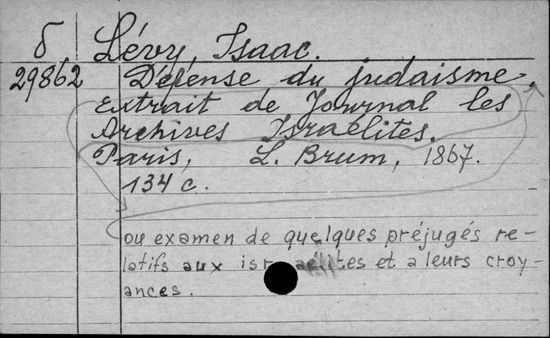 б Lévy, Isaac.
29862 Défense du judaisme.
Extrait de Journal les
Archives Israélites.
Paris, L. Brum, 1867.
134 c.
ou examen de quelques préjugés re-
latifs aux israélites et a leurs croy-
ances.